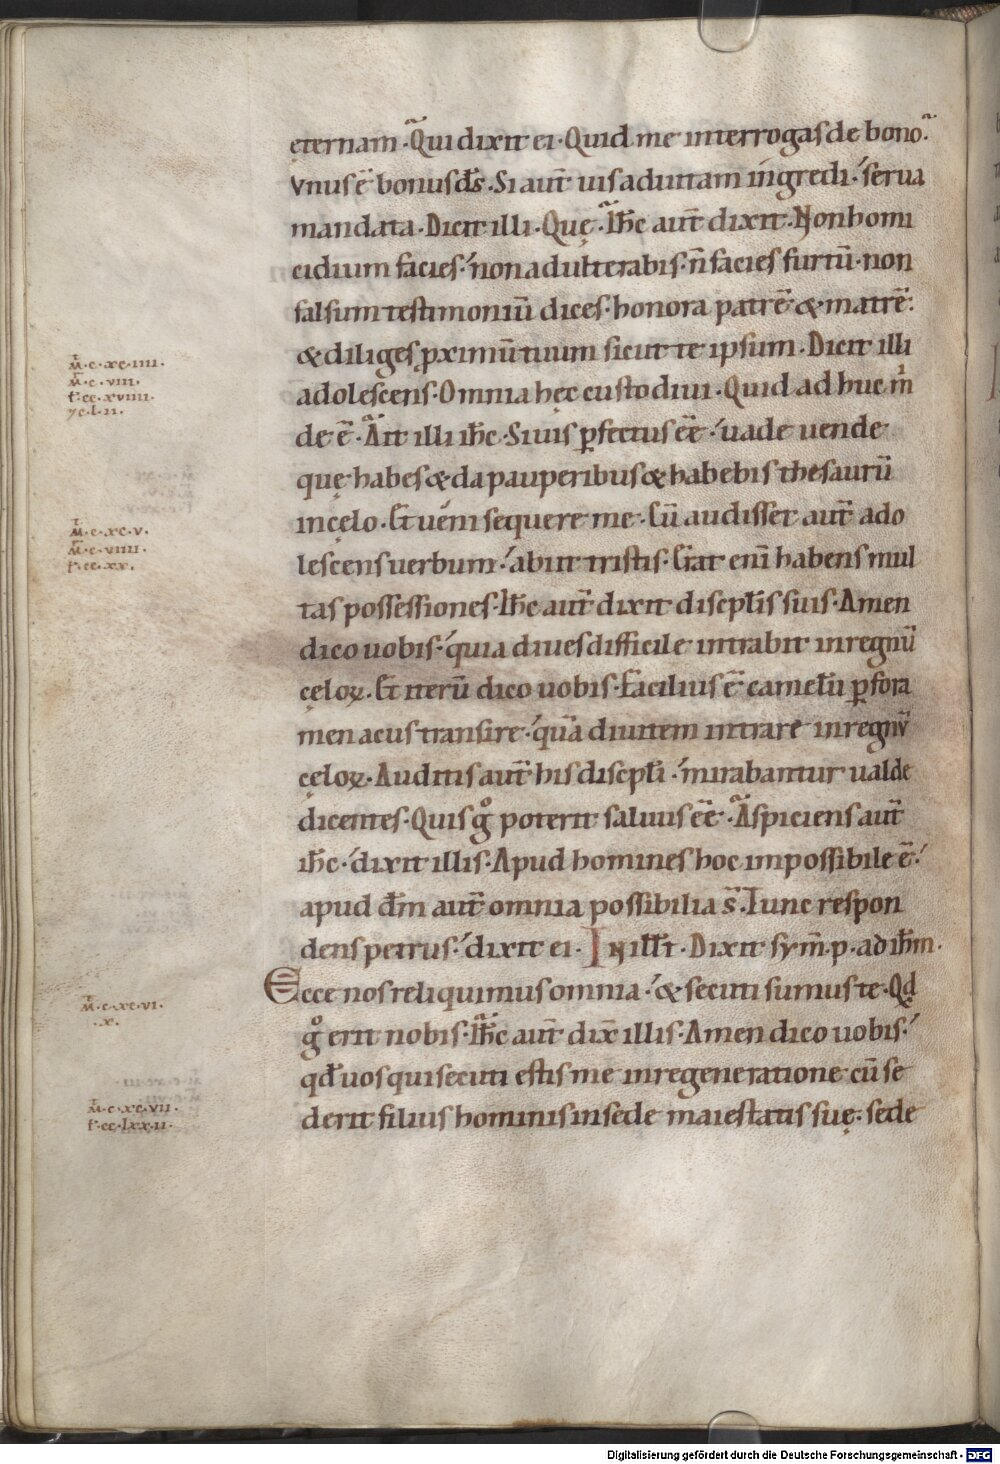 ęternam · Qui dixit ei · Quid me interrogas de bono ·
Vnus ē bonus d̄s · Si aut̄ uis ad uitam ingredi · serua
mandata · Dicit illi · Quę · Ih̄c aut̄ dixit · Non homi
cidium facies · non adulterabis · n̄ facies furtū · non
falsum testimoniū dices · honora patrē & matrē ·
& diliges ꝓximū tuum sicut te ipsum · Dicit illi
adolescens · Omnia hęc custodiui · Quid adhuc m̄
de ē · Ait illi ih̄c · Si uis ꝑfectus eē · uade uende
quę habes & da pauperibus & habebis thesaurū
in cęlo · Et ueni sequere me · Cū audisset aut̄ ado
lescens uerbum · abiit tristis · Erat enī habens mul
tas possessiones · Ih̄c aut̄ dixit discipl̄is suis · Amen
dico uobis · quia diues difficile intrabit in regnū
cęloꝝ · Et iterū dico uobis · Facilius ē camelū ꝑ fora
men acus transire · quā diuitem intrare in regnū
cęloꝝ · Auditis aut̄ his discipl̄i · mirabantur ualde
dicentes · Quis gͦ poterit saluus eē · Aspiciens aut̄
ih̄c · dixit illis · Apud homines hoc impossibile ē ·
apud dm̄ aut̄ omnia possibilia s̄ · Tunc respon
dens petrus · dixit ei · IN ill̄ t̄ · Dixit sym̄ · p · ad ih̄m ·
Ecce nos reliquimus omnia · & secuti sumus te · Qd
gͦ erit nobis · Ih̄c aut̄ dix̄ illis · Amen dico uobis ·
qđ uos qui secuti estis me in regeneratione cū se
derit filius hominis in sede maiestatis suę · sede
M̄ · c · xc · iiii ·
M̄ · c · viii ·
L̄ · cc · xviiii ·
yc · l · ii ·
M̄ · c · xc · v ·
M̄ · c · viiii ·
L̄ · cc · xx ·
M̄ · c · xc · vi ·
· x ·
M̄ · c · xc · vii ·
L̄ · cc · lxx · ii ·
Digitalisierung gefördert durch die Deutsche Forschungsgemeinschaft - DFG